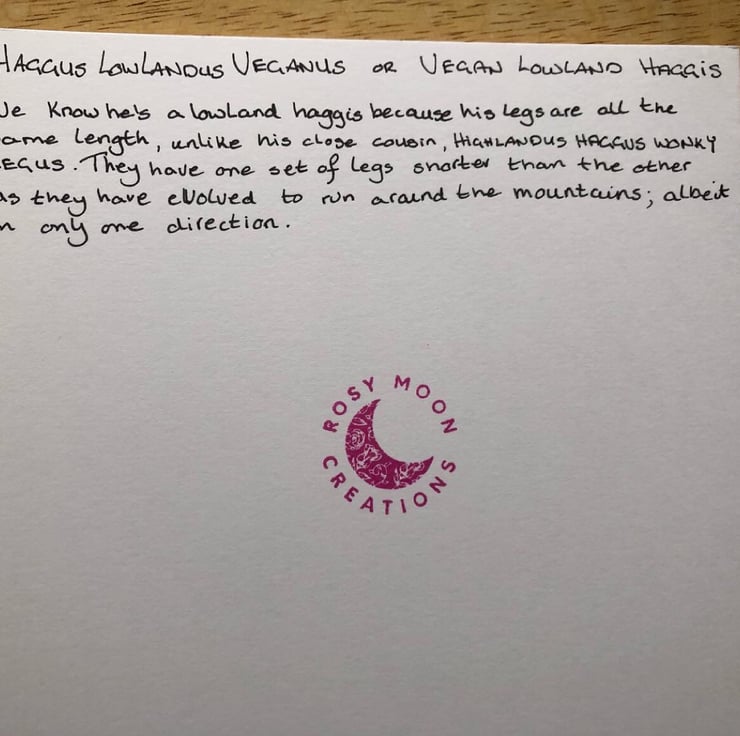 HAGGUS LOWLANDUS VEGANUS OR VEGAN LOWLAND HAGGIS
We know he's a lowland haggis because his legs are all the
ame length, unlike his close cousin, HIGHLANDUS HAGGUS WONKY
LEGUS. They have one set of legs shorter than the other
as they have evolved to run around the mountains; albeit
n only one direction.
ROSY MOON
CREATIONS